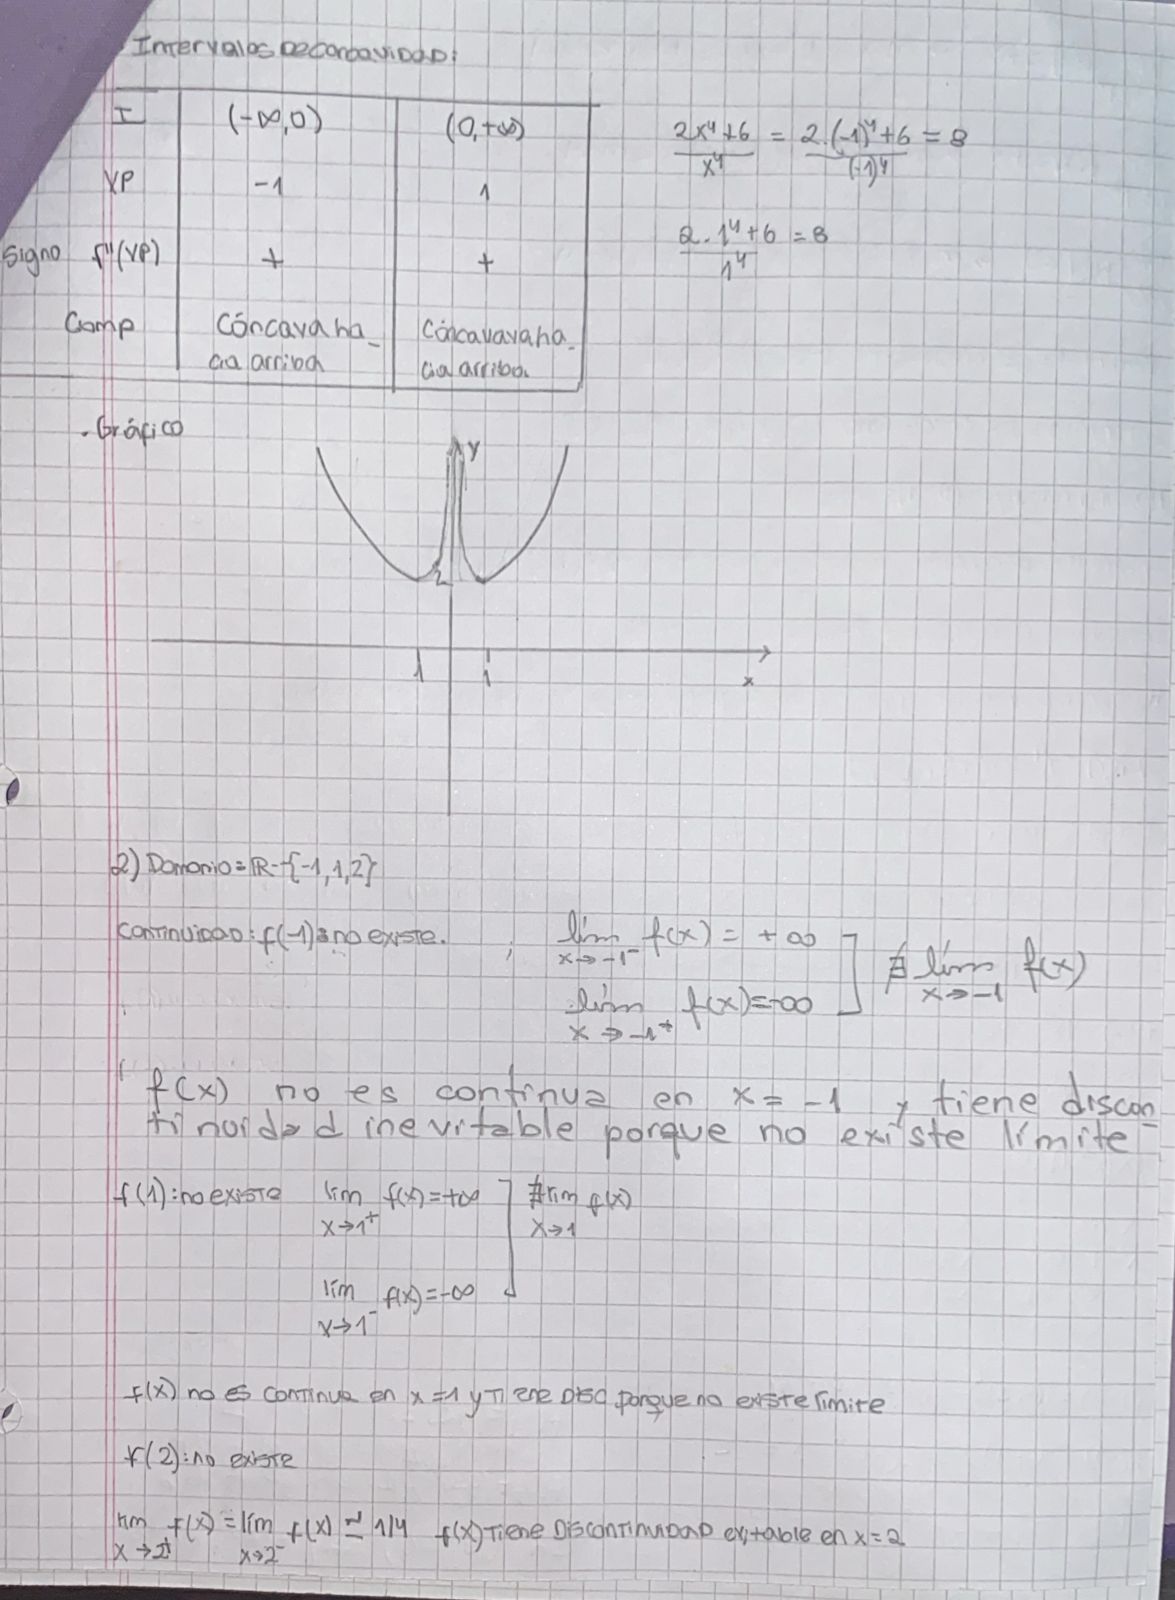 Intervalos De concavidad:
I (-∞,0) (0,+∞)
VP -1 1
Signo f''(VP) + +
Comp Cóncava ha_ Cóncavavaha_
cia arriba cia arriba.
2x⁴+6 / x⁴ = 2.(-1)⁴+6 / (-1)⁴ = 8
2.1⁴+6 / 1⁴ = 8
. Gráfico
y
2
1 1
x
2) Domonio = ℝ-{-1,1,2}
Continuidad: f(-1): no existe. ; lím x→-1⁻ f(x) = +∞
lím x→-1⁺ f(x)=-∞ ] ∄ lím x→-1 f(x)
f(x) no es continua en x = -1 y tiene discon
tinuidad inevitable porque no existe límite
f(1): no existe lím x→1⁺ f(x)=+∞ ] ∄ lim x→1 f(x)
lím x→1⁻ f(x)=-∞
f(x) no es continua en x=1 y Tiene Disc porque no existe límite
f(2): no existe
lim x→2⁺ f(x) = lím x→2⁻ f(x) ≃ 1/4 f(x) Tiene Discontinuidad evitable en x=2